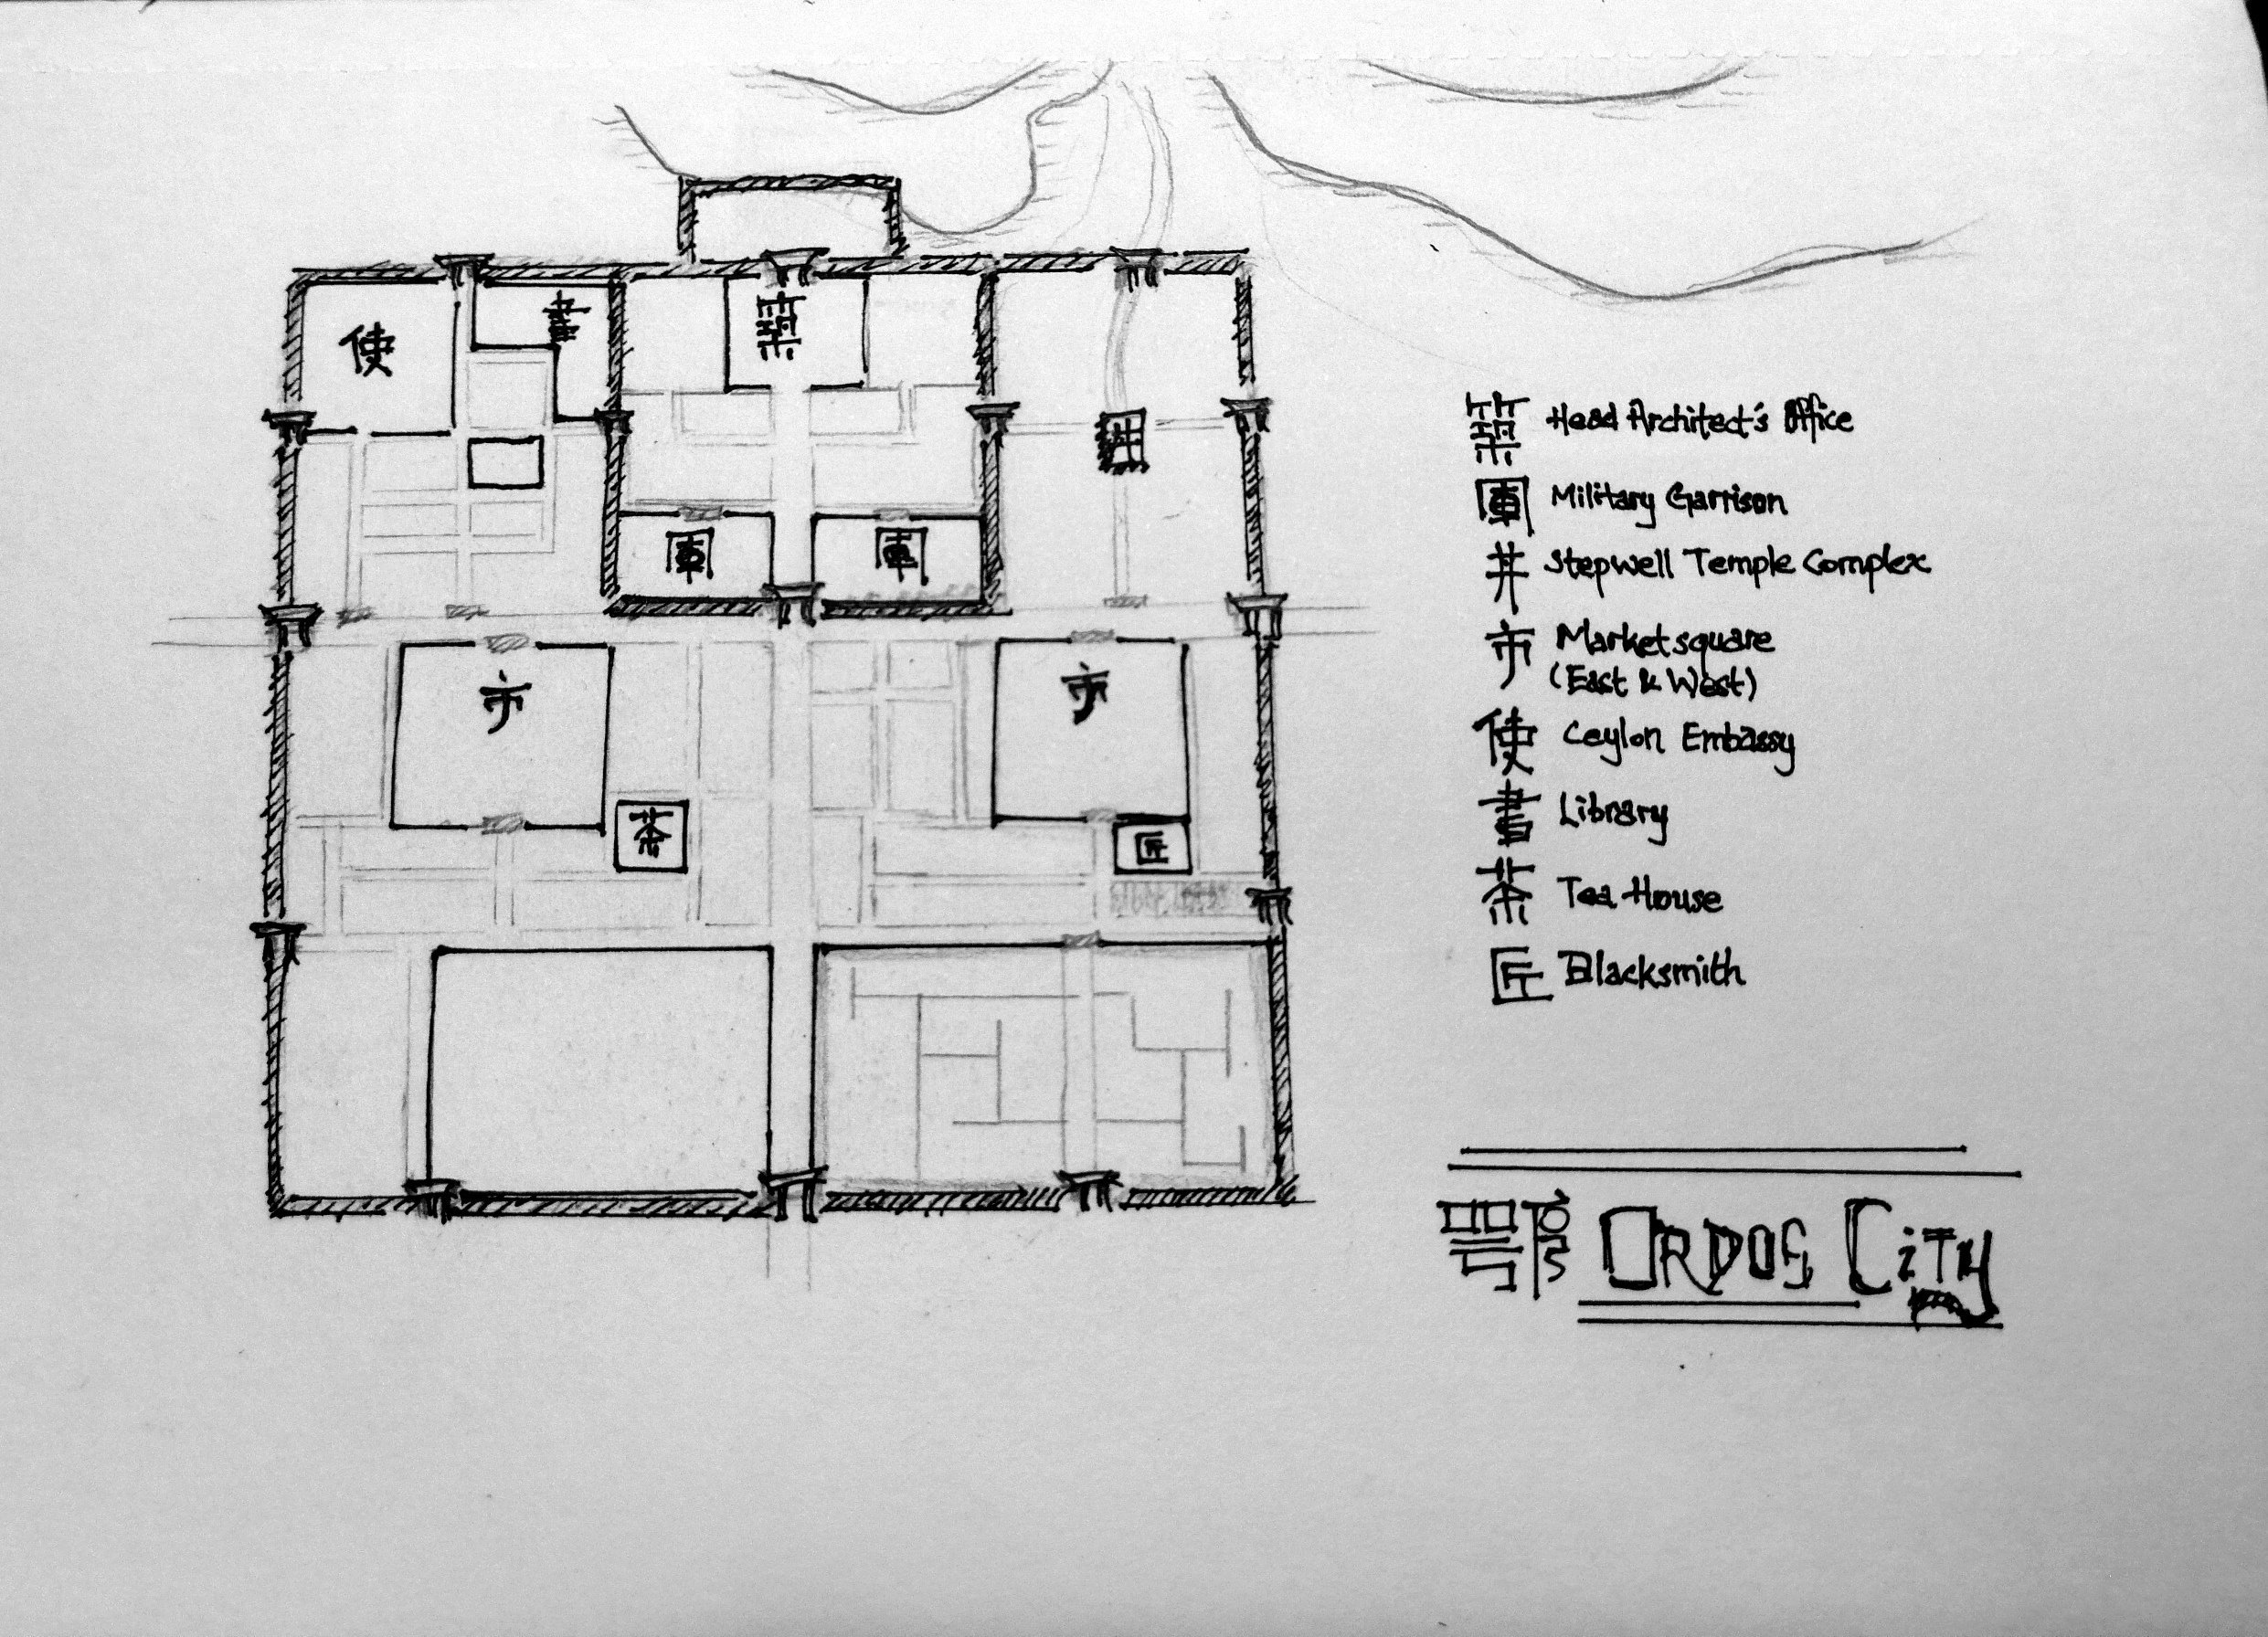 使
書
築
井
軍
軍
市
市
茶
匠
築 Head Architect's Office
軍 Military Garrison
井 Stepwell Temple Complex
市 Marketsquare
(East & West)
使 Ceylon Embassy
書 Library
茶 Tea House
匠 Blacksmith
ORDOS CiTy